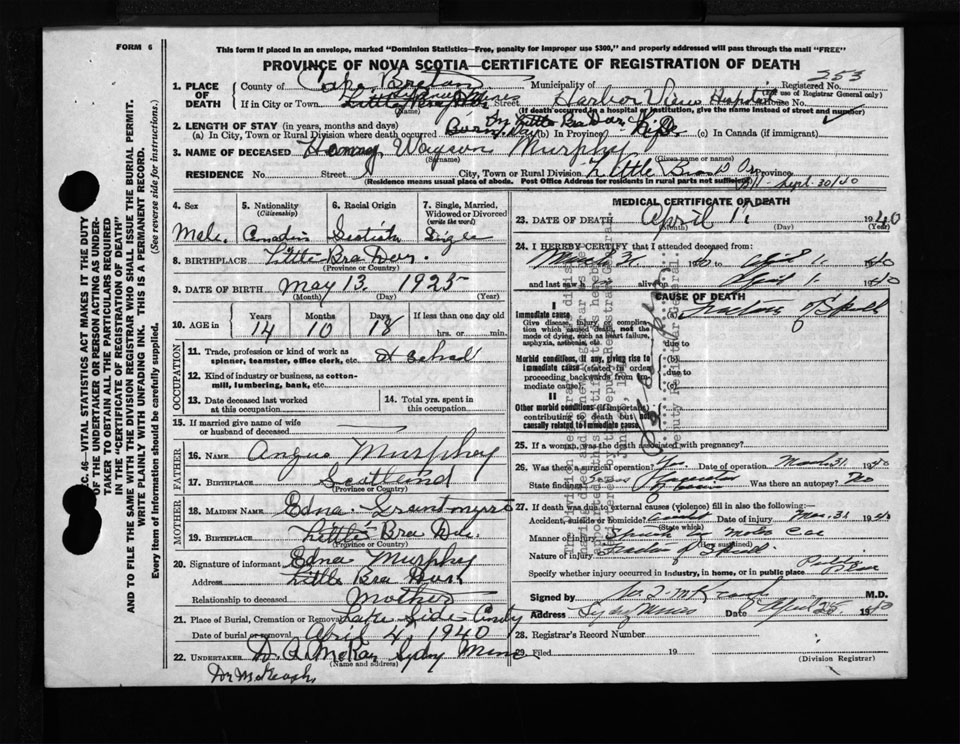 FORM 6
This form if placed in an envelope, marked "Dominion Statistics—Free, penalty for improper use $300," and properly addressed will pass through the mail "FREE"
PROVINCE OF NOVA SCOTIA—CERTIFICATE OF REGISTRATION OF DEATH
253
1. PLACE OF DEATH
County of Cape Breton Municipality of Registered No.
(For use of Registrar General only)
If in City or Town Street Harbor View Hospital House No.
(Name) (If death occurred in a hospital or institution, give the name instead of street and number)
2. LENGTH OF STAY (in years, months and days)
(a) In City, Town or Rural Division where death occurred (b) In Province Life (c) In Canada (if immigrant)
3. NAME OF DECEASED Wayson Murphy
(Surname) (Given name or names)
RESIDENCE No. Street City, Town or Rural Division Little Bras D Or Province
(Residence means usual place of abode. Post Office Address for residents in rural parts not sufficient)
Sept. 30/40
4. Sex
Male.
5. Nationality
(Citizenship)
Canadian
6. Racial Origin
Scotish
7. Single, Married, Widowed or Divorced
(write the word)
Single
8. BIRTHPLACE Little Bra Dor.
(Province or Country)
9. DATE OF BIRTH May 13, 1925
(Month) (Day) (Year)
10. AGE in
Years Months Days If less than one day old
14 10 18 hrs. or min.
OCCUPATION
11. Trade, profession or kind of work as spinner, teamster, office clerk, etc.
12. Kind of industry or business, as cotton-mill, lumbering, bank, etc.
13. Date deceased last worked at this occupation
14. Total yrs. spent in this occupation
15. If married give name of wife or husband of deceased
FATHER
16. NAME Angus Murphy
17. BIRTHPLACE Scotland
(Province or Country)
MOTHER
18. MAIDEN NAME Edna
19. BIRTHPLACE Little Bra Dor.
(Province or Country)
20. Signature of informant Edna Murphy
Address Little Bra Dor
Relationship to deceased Mother
21. Place of Burial, Cremation or Removal Lake Side
Date of burial or removal April 4, 1940
22. UNDERTAKER Sydney Mines
(Name and address)
MEDICAL CERTIFICATE OF DEATH
23. DATE OF DEATH April 1. 1940
(Month) (Day) (Year)
24. I HEREBY CERTIFY that I attended deceased from:
March 31 1940 to April 1 1940
and last saw alive on April 1 1940
CAUSE OF DEATH
I
Immediate cause
Give disease, injury or complication which caused death, not the mode of dying, such as heart failure, asphyxia, asthenia, etc.
Fracture of Skull
due to
Morbid conditions, if any, giving rise to immediate cause (stated in order proceeding backwards from immediate cause)
(b)
due to
(c)
II
Other morbid conditions (if important) contributing to death but not causally related to immediate cause
25. If a woman, was the death associated with pregnancy?
26. Was there a surgical operation? Yes Date of operation March 31 1940
State findings Was there an autopsy? No
27. If death was due to external causes (violence) fill in also the following:
Accident, suicide or homicide? Date of injury Mar. 31 1940
(State which)
Manner of injury Struck by Motor Car
(How sustained)
Nature of injury Fracture of Skull
Specify whether injury occurred in industry, in home, or in public place Public Place
Signed by M.D.
Address Sydney Mines Date April 25 1940
28. Registrar's Record Number
29. Filed 19
(Division Registrar)
C. 46—VITAL STATISTICS ACT MAKES IT THE DUTY OF THE UNDERTAKER OR PERSON ACTING AS UNDERTAKER TO OBTAIN ALL THE PARTICULARS REQUIRED IN THE "CERTIFICATE OF REGISTRATION OF DEATH"
AND TO FILE THE SAME WITH THE DIVISION REGISTRAR WHO SHALL ISSUE THE BURIAL PERMIT.
WRITE PLAINLY WITH UNFADING INK. THIS IS A PERMANENT RECORD.
Every item of Information should be carefully supplied. (See reverse side for instructions.)